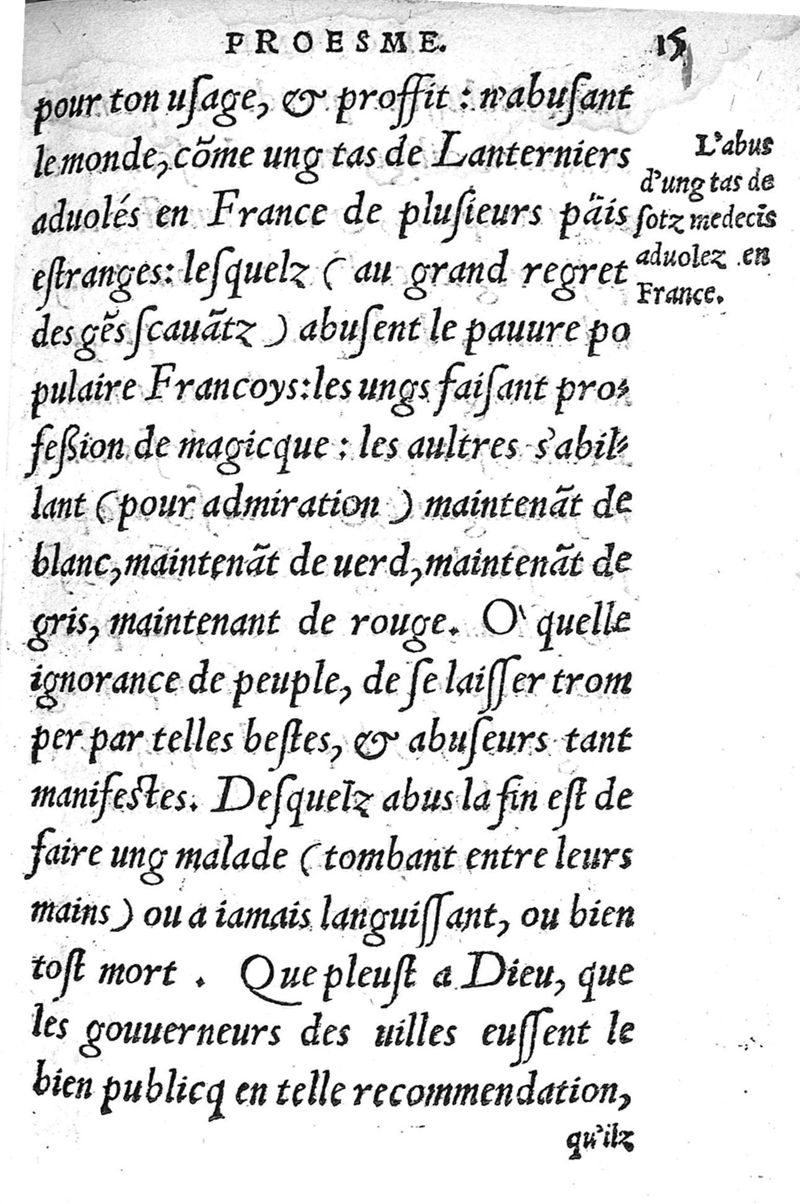 PROESME. 15
pour ton uſage, & proffit : n'abuſant
le monde, cõme ung tas de Lanterniers
aduolés en France de pluſieurs päis
eſtranges: leſquelz ( au grand regret
des gẽs ſcauãtz ) abuſent le pauure po
pulaire Francoys: les ungs faiſant pro-
feßion de magicque : les aultres s'abil-
lant ( pour admiration ) maintenãt de
blanc, maintenãt de uerd, maintenãt de
gris, maintenant de rouge. O' quelle
ignorance de peuple, de ſe laiſſer trom
per par telles beſtes, & abuſeurs tant
manifeſtes. Deſquelz abus la fin eſt de
faire ung malade ( tombant entre leurs
mains ) ou a iamais languiſſant, ou bien
toſt mort . Que pleuſt a Dieu, que
les gouuerneurs des uilles euſſent le
bien publicq en telle recommendation,
qu'ilz
L'abus
d'ung tas de
ſotz medecĩs
aduolez en
France.